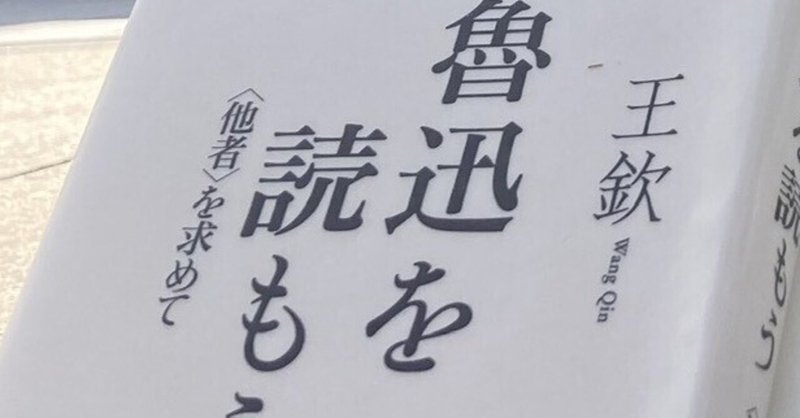 王欽 Wang Qin
魯迅を
読もう
〈他者〉を求めて
読もう